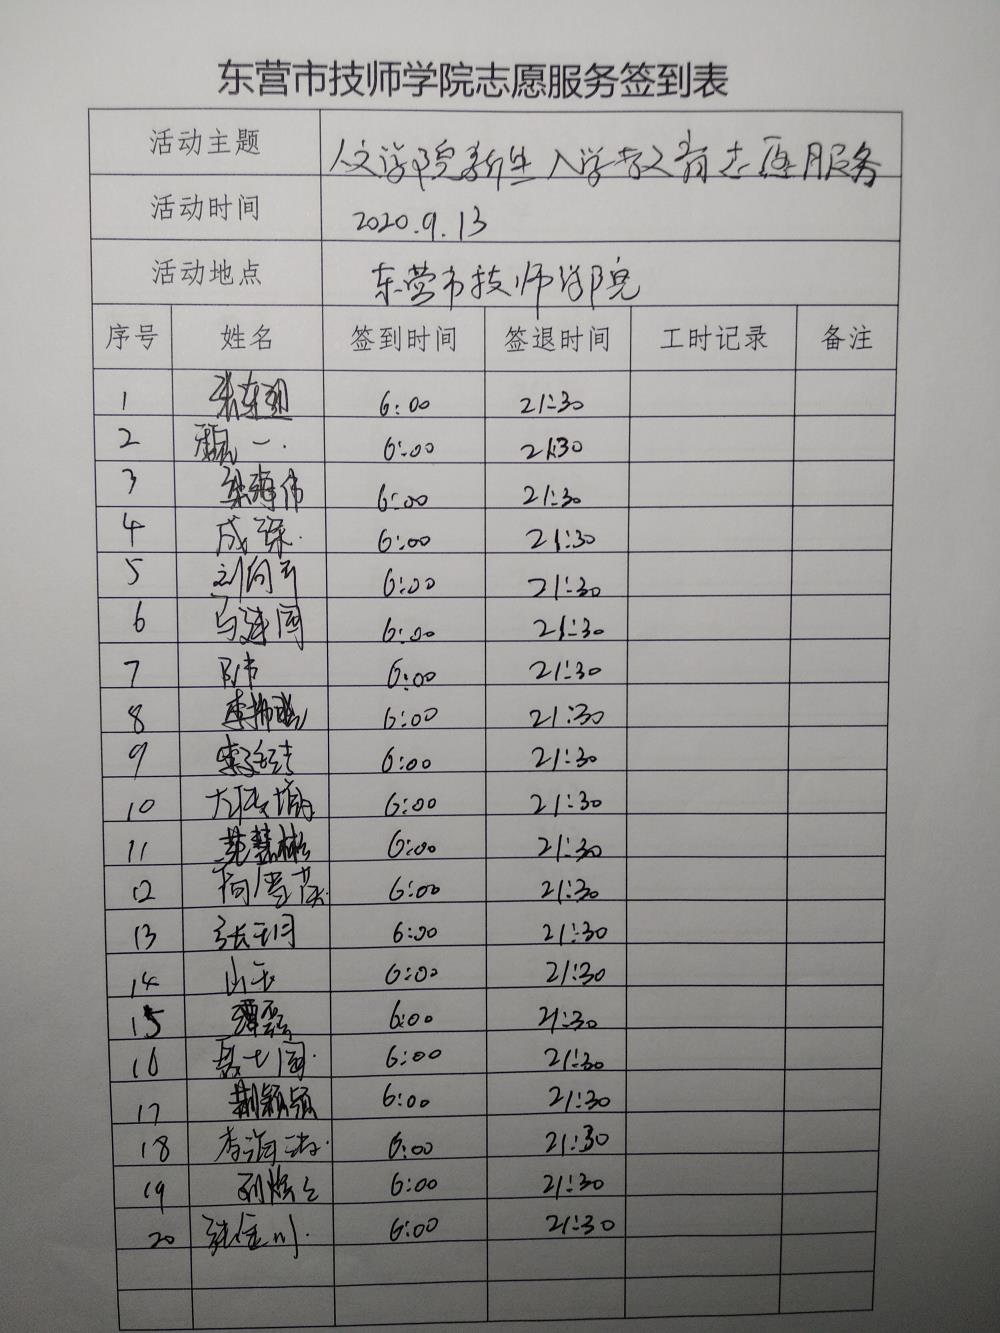 东营市技师学院志愿服务签到表
活动主题 人文学院新生入学教育志愿服务
活动时间 2020.9.13
活动地点 东营市技师学院
序号 姓名 签到时间 签退时间 工时记录 备注
1 6:00 21:30
2 魏一 6:00 21:30
3 6:00 21:30
4 成琛 6:00 21:30
5 6:00 21:30
6 马建国 6:00 21:30
7 6:00 21:30
8 6:00 21:30
9 6:00 21:30
10 6:00 21:30
11 6:00 21:30
12 6:00 21:30
13 张玉月 6:00 21:30
14 6:00 21:30
15 谭磊 6:00 21:30
16 聂士国 6:00 21:30
17 荆颖颖 6:00 21:30
18 6:00 21:30
19 6:00 21:30
20 张金川 6:00 21:30